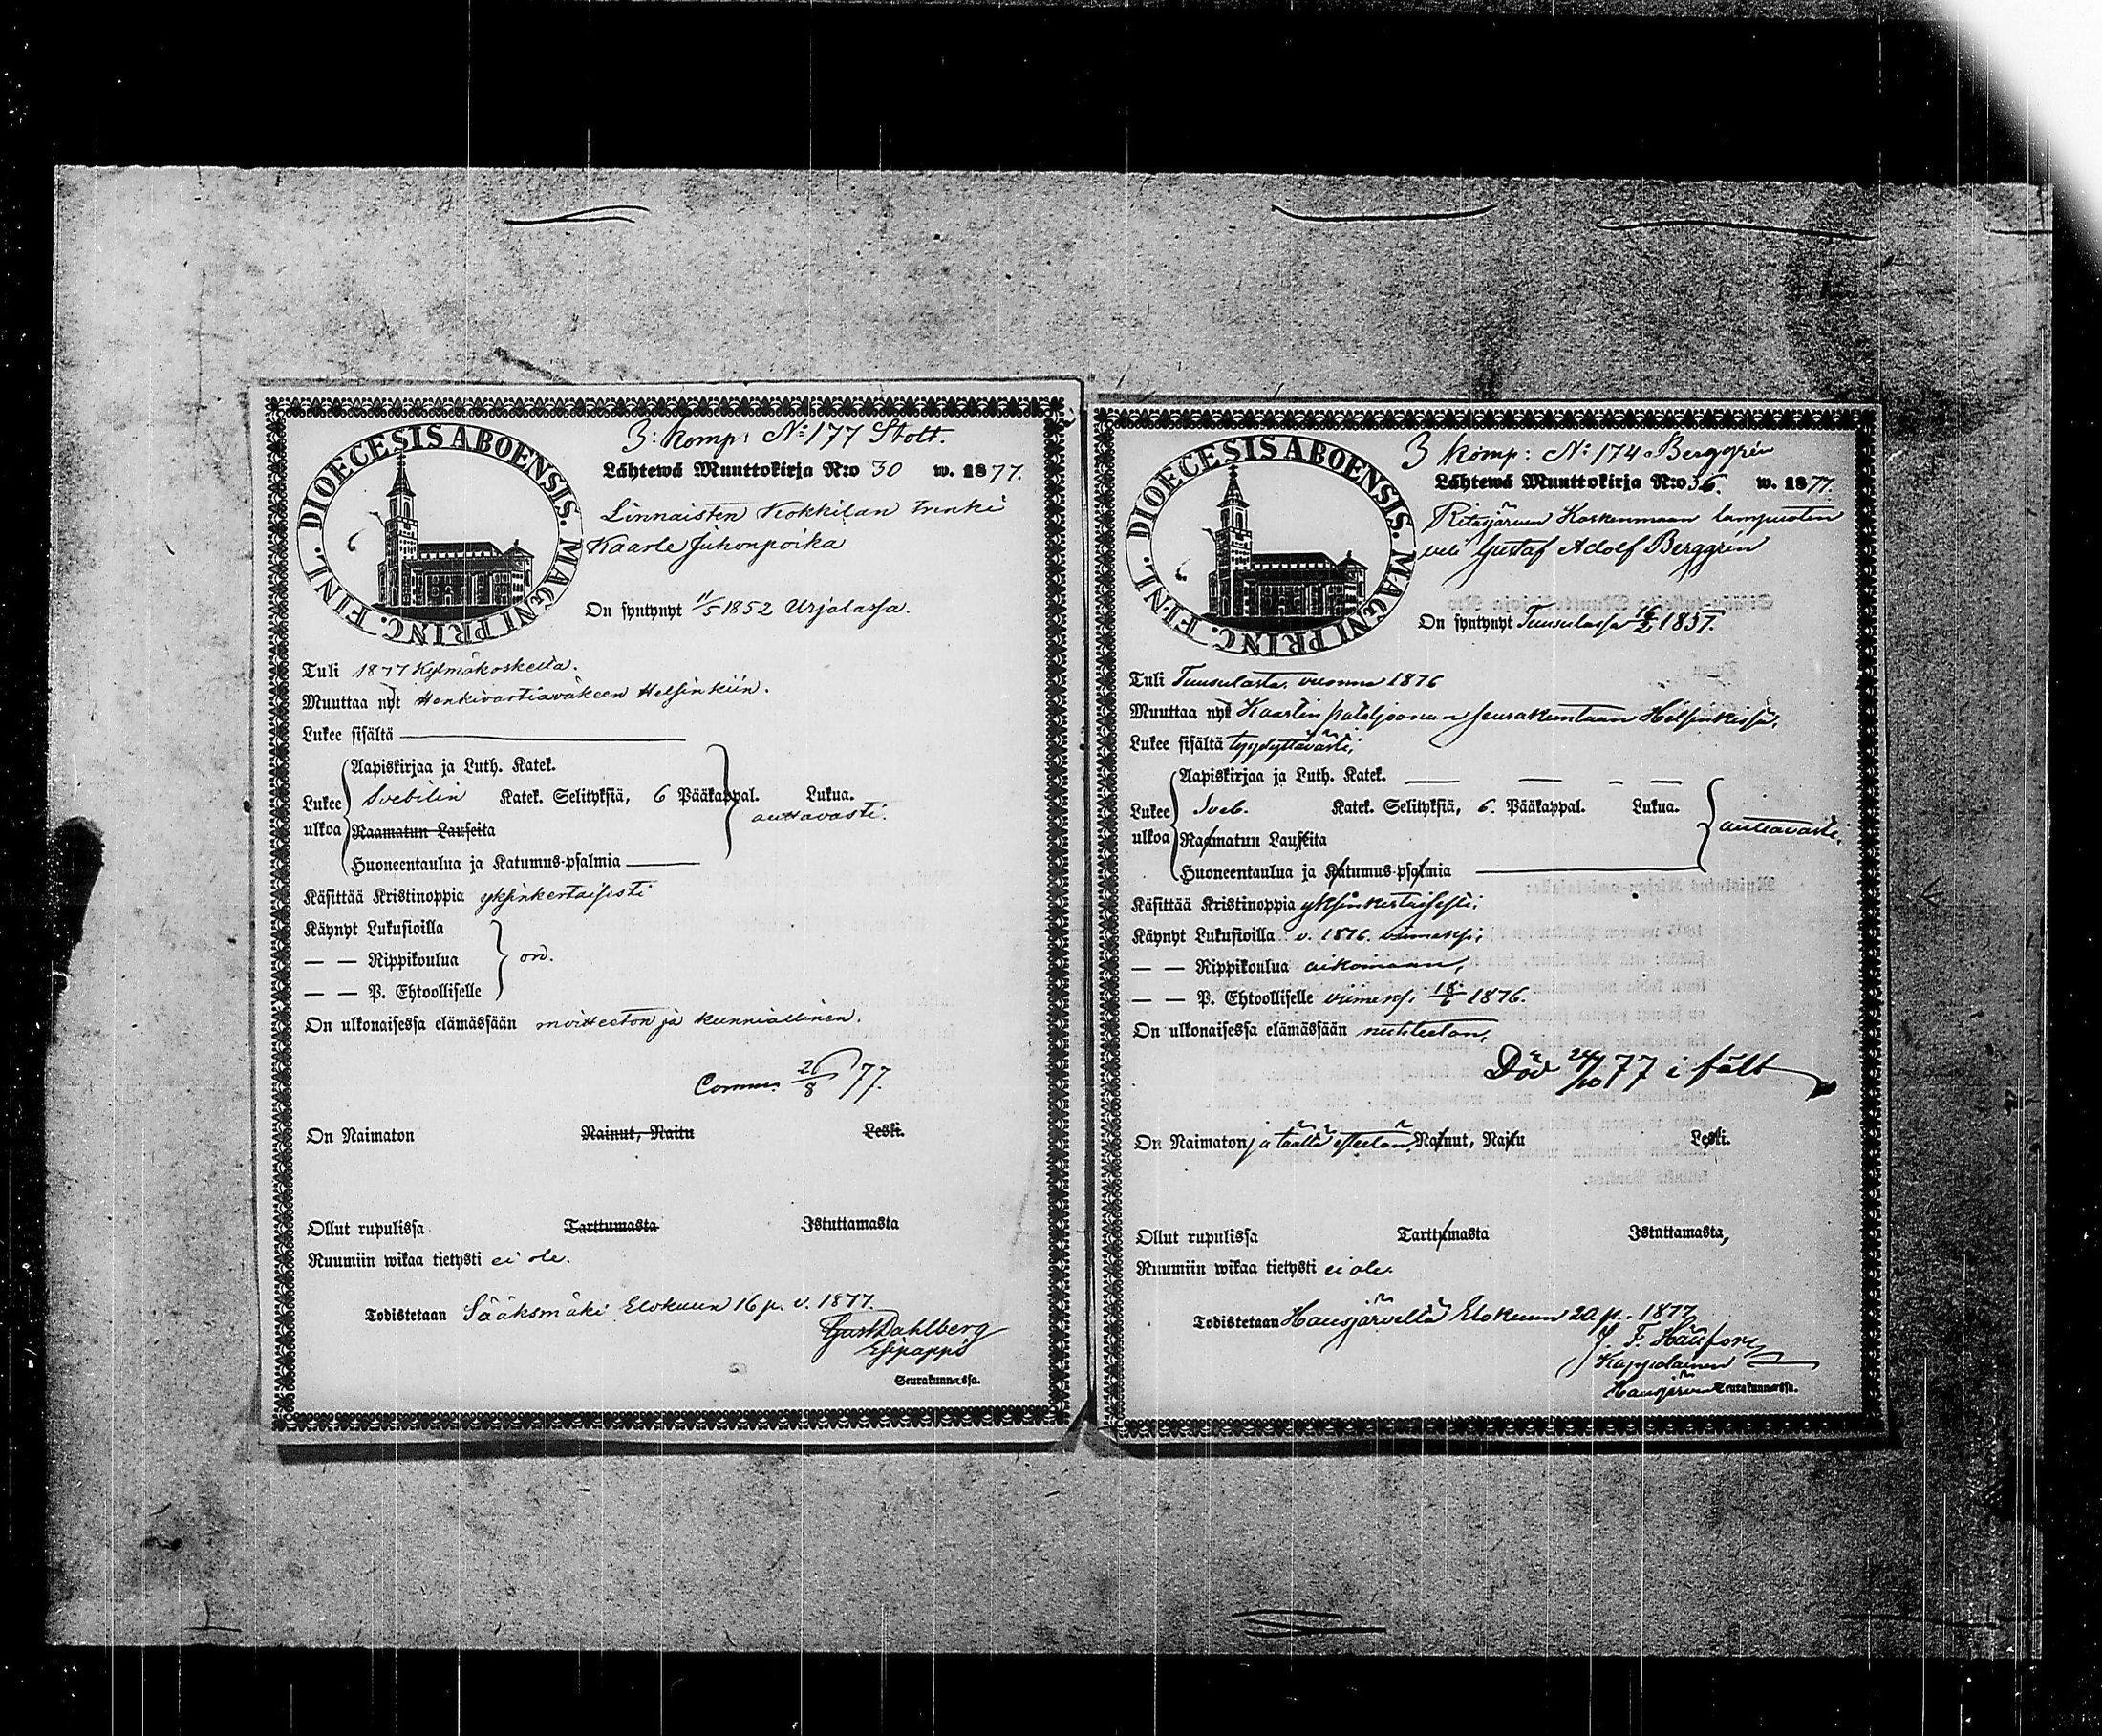 3: Komp: No: 177 Stolt.
DIOECESIS ABOENSIS. MAGNI PRINC. FINL.
Lähtewä Muuttokirja N:o 30 w. 1877.
Linnaisten Kokkilan trenki
Kaarle Juhonpoika
On syntynyt 11/5 1852 Urjalassa.
Tuli 1877 Kylmäkoskelta.
Muuttaa nyt Henkivartiawäkeen Helsinkiin.
Lukee sisältä
Aapiskirjaa ja Luth. Katek.
Lukee Svebilin Katek. Selityksiä, 6 Pääkappal. Lukua.
auttavasti.
ulkoa Raamatun Lauseita
Huoneentaulua ja Katumus-psalmia
Käsittää Kristinoppia yksinkertaisesti
Käynyt Lukusioilla
— — Rippikoulua on.
— — P. Ehtoolliselle
On ulkonaisessa elämässään moitteeton ja kunniallinen.
Comm. /8 77.
On Naimaton Nainut, Naitu Leski.
Ollut rupulissa Tarttumasta Istuttamasta
Ruumiin wikaa tietysti ei ole.
Todistetaan Sääksmäki Elokuun 16 p. v. 1877.
Gust Dahlberg
Esipappi
Seurakunnassa.
3 Komp: No: 174 Berggrén
DIOECESIS ABOENSIS. MAGNI PRINC. FINL.
Lähtewä Muuttokirja N:o 36. w. 1877.
Koskenmaan lampuotin
veli Gustaf Adolf Berggrén
On syntynyt Tuusulassa 16/2 1857.
Tuli Tuusulasta vuonna 1876
Muuttaa nyt Kaartin pataljoonan seurakuntaan Helsinkissä.
Lukee sisältä tyydyttävästi;
Aapiskirjaa ja Luth. Katek.
Lukee Sveb. Katek. Selityksiä, 6. Pääkappal. Lukua.
auttavasti.
ulkoa Raamatun Lauseita
Huoneentaulua ja Katumus-psalmia
Käsittää Kristinoppia yksinkertaisesti;
Käynyt Lukusioilla v. 1876. viimeksi;
— — Rippikoulua aikonaan,
— — P. Ehtoolliselle viimeksi 18/6 1876.
On ulkonaisessa elämässään nuhteeton,
Död 24/10 77 i fält
On Naimaton ja täällä esteetön. Nainut, Naitu Leski.
Ollut rupulissa Tarttumasta Istuttamasta,
Ruumiin wikaa tietysti ei ole.
Todistetaan Hausjärvellä Elokuun 20 p. 1877
J. F.
Kappalainen
Hausjärven Seurakunnassa.